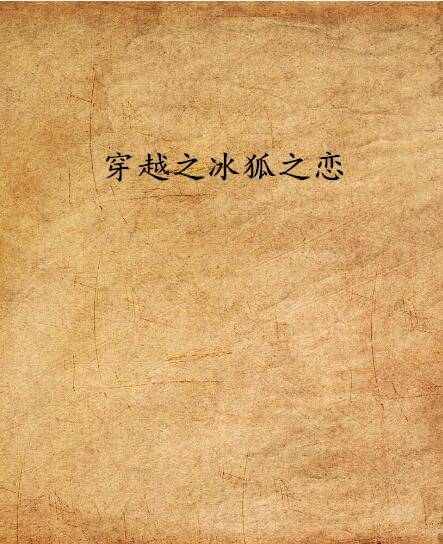 穿越之冰狐之恋